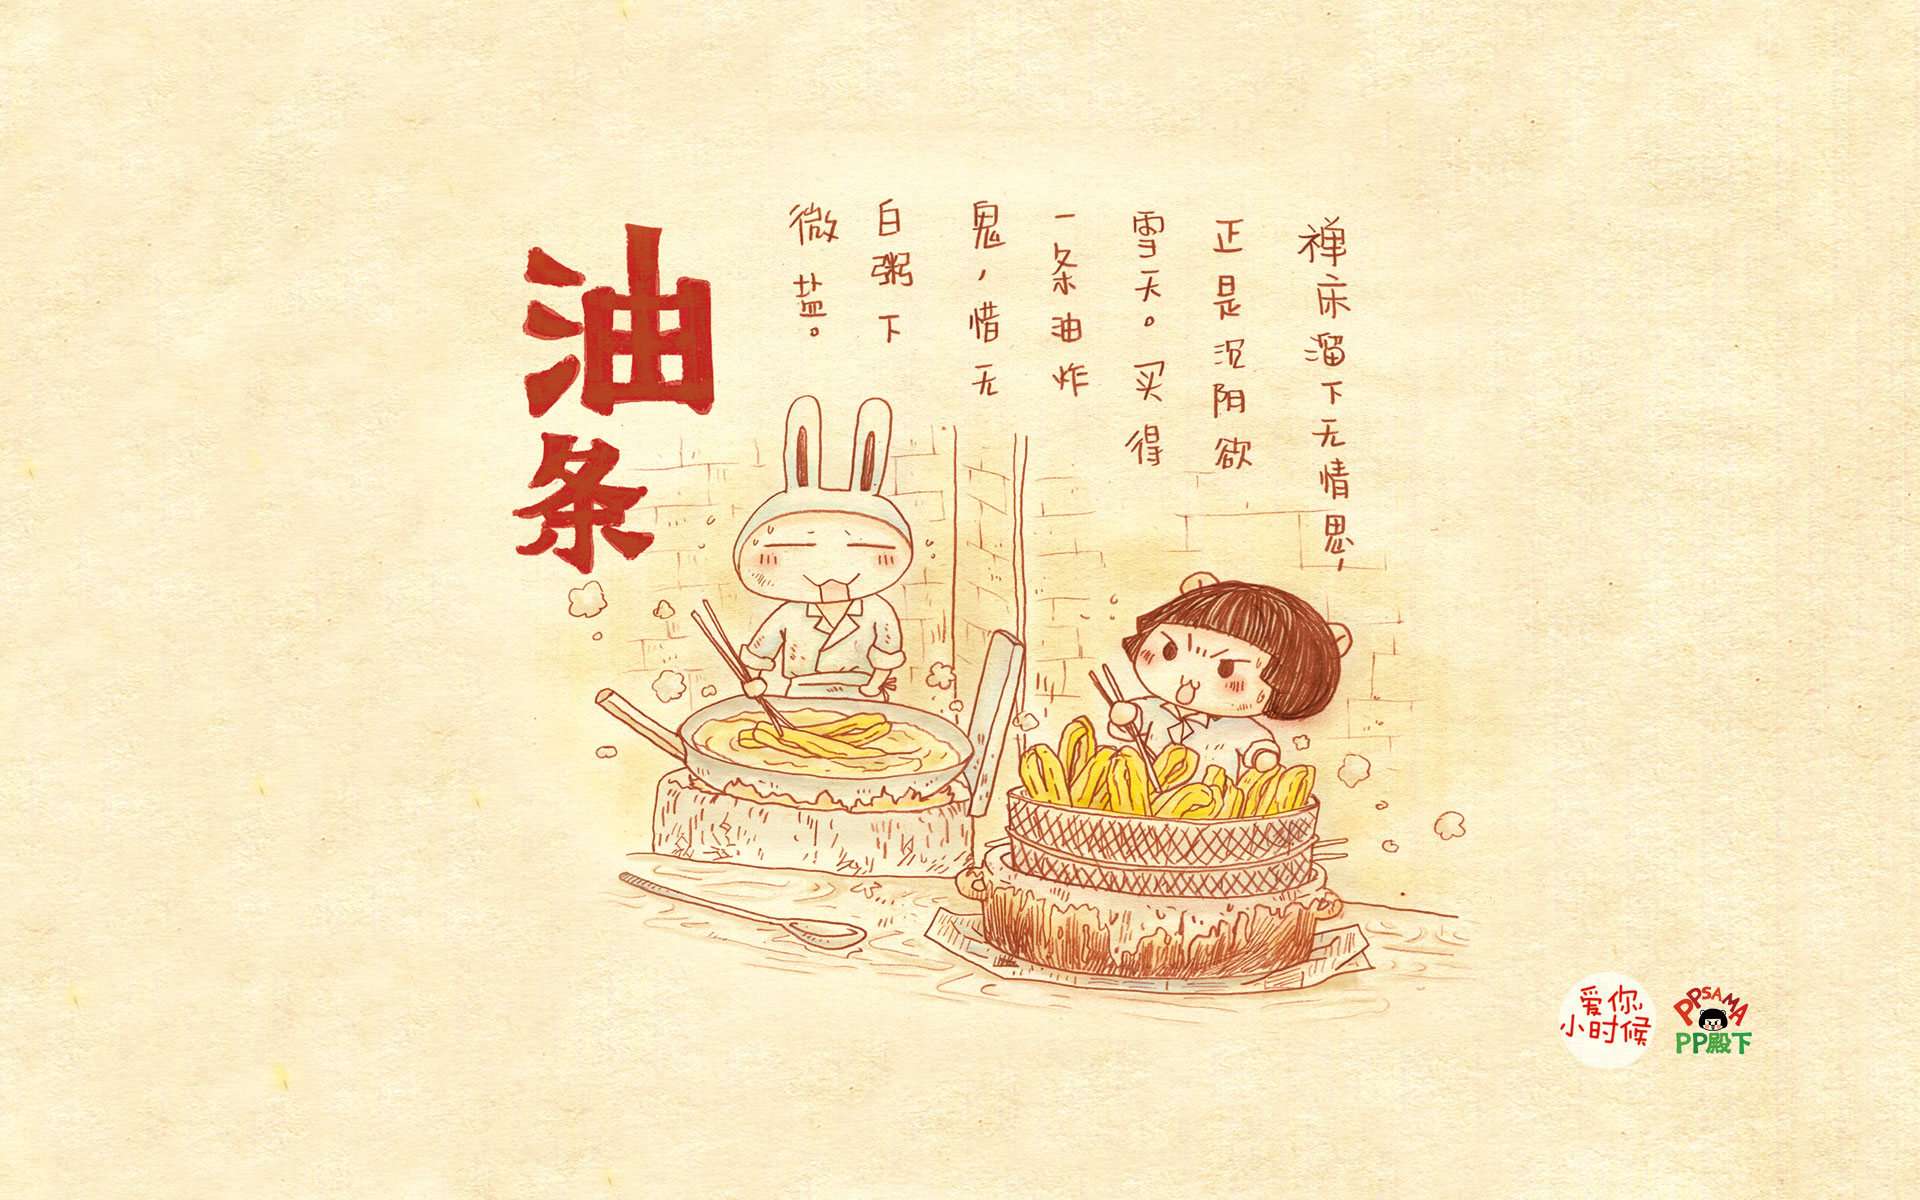 禅床溜下无情思，
正是沉阴欲
雪天。买得
一条油炸
鬼，惜无
白粥下
微盐。
油条
爱你
小时候
PPSAMA
PP殿下